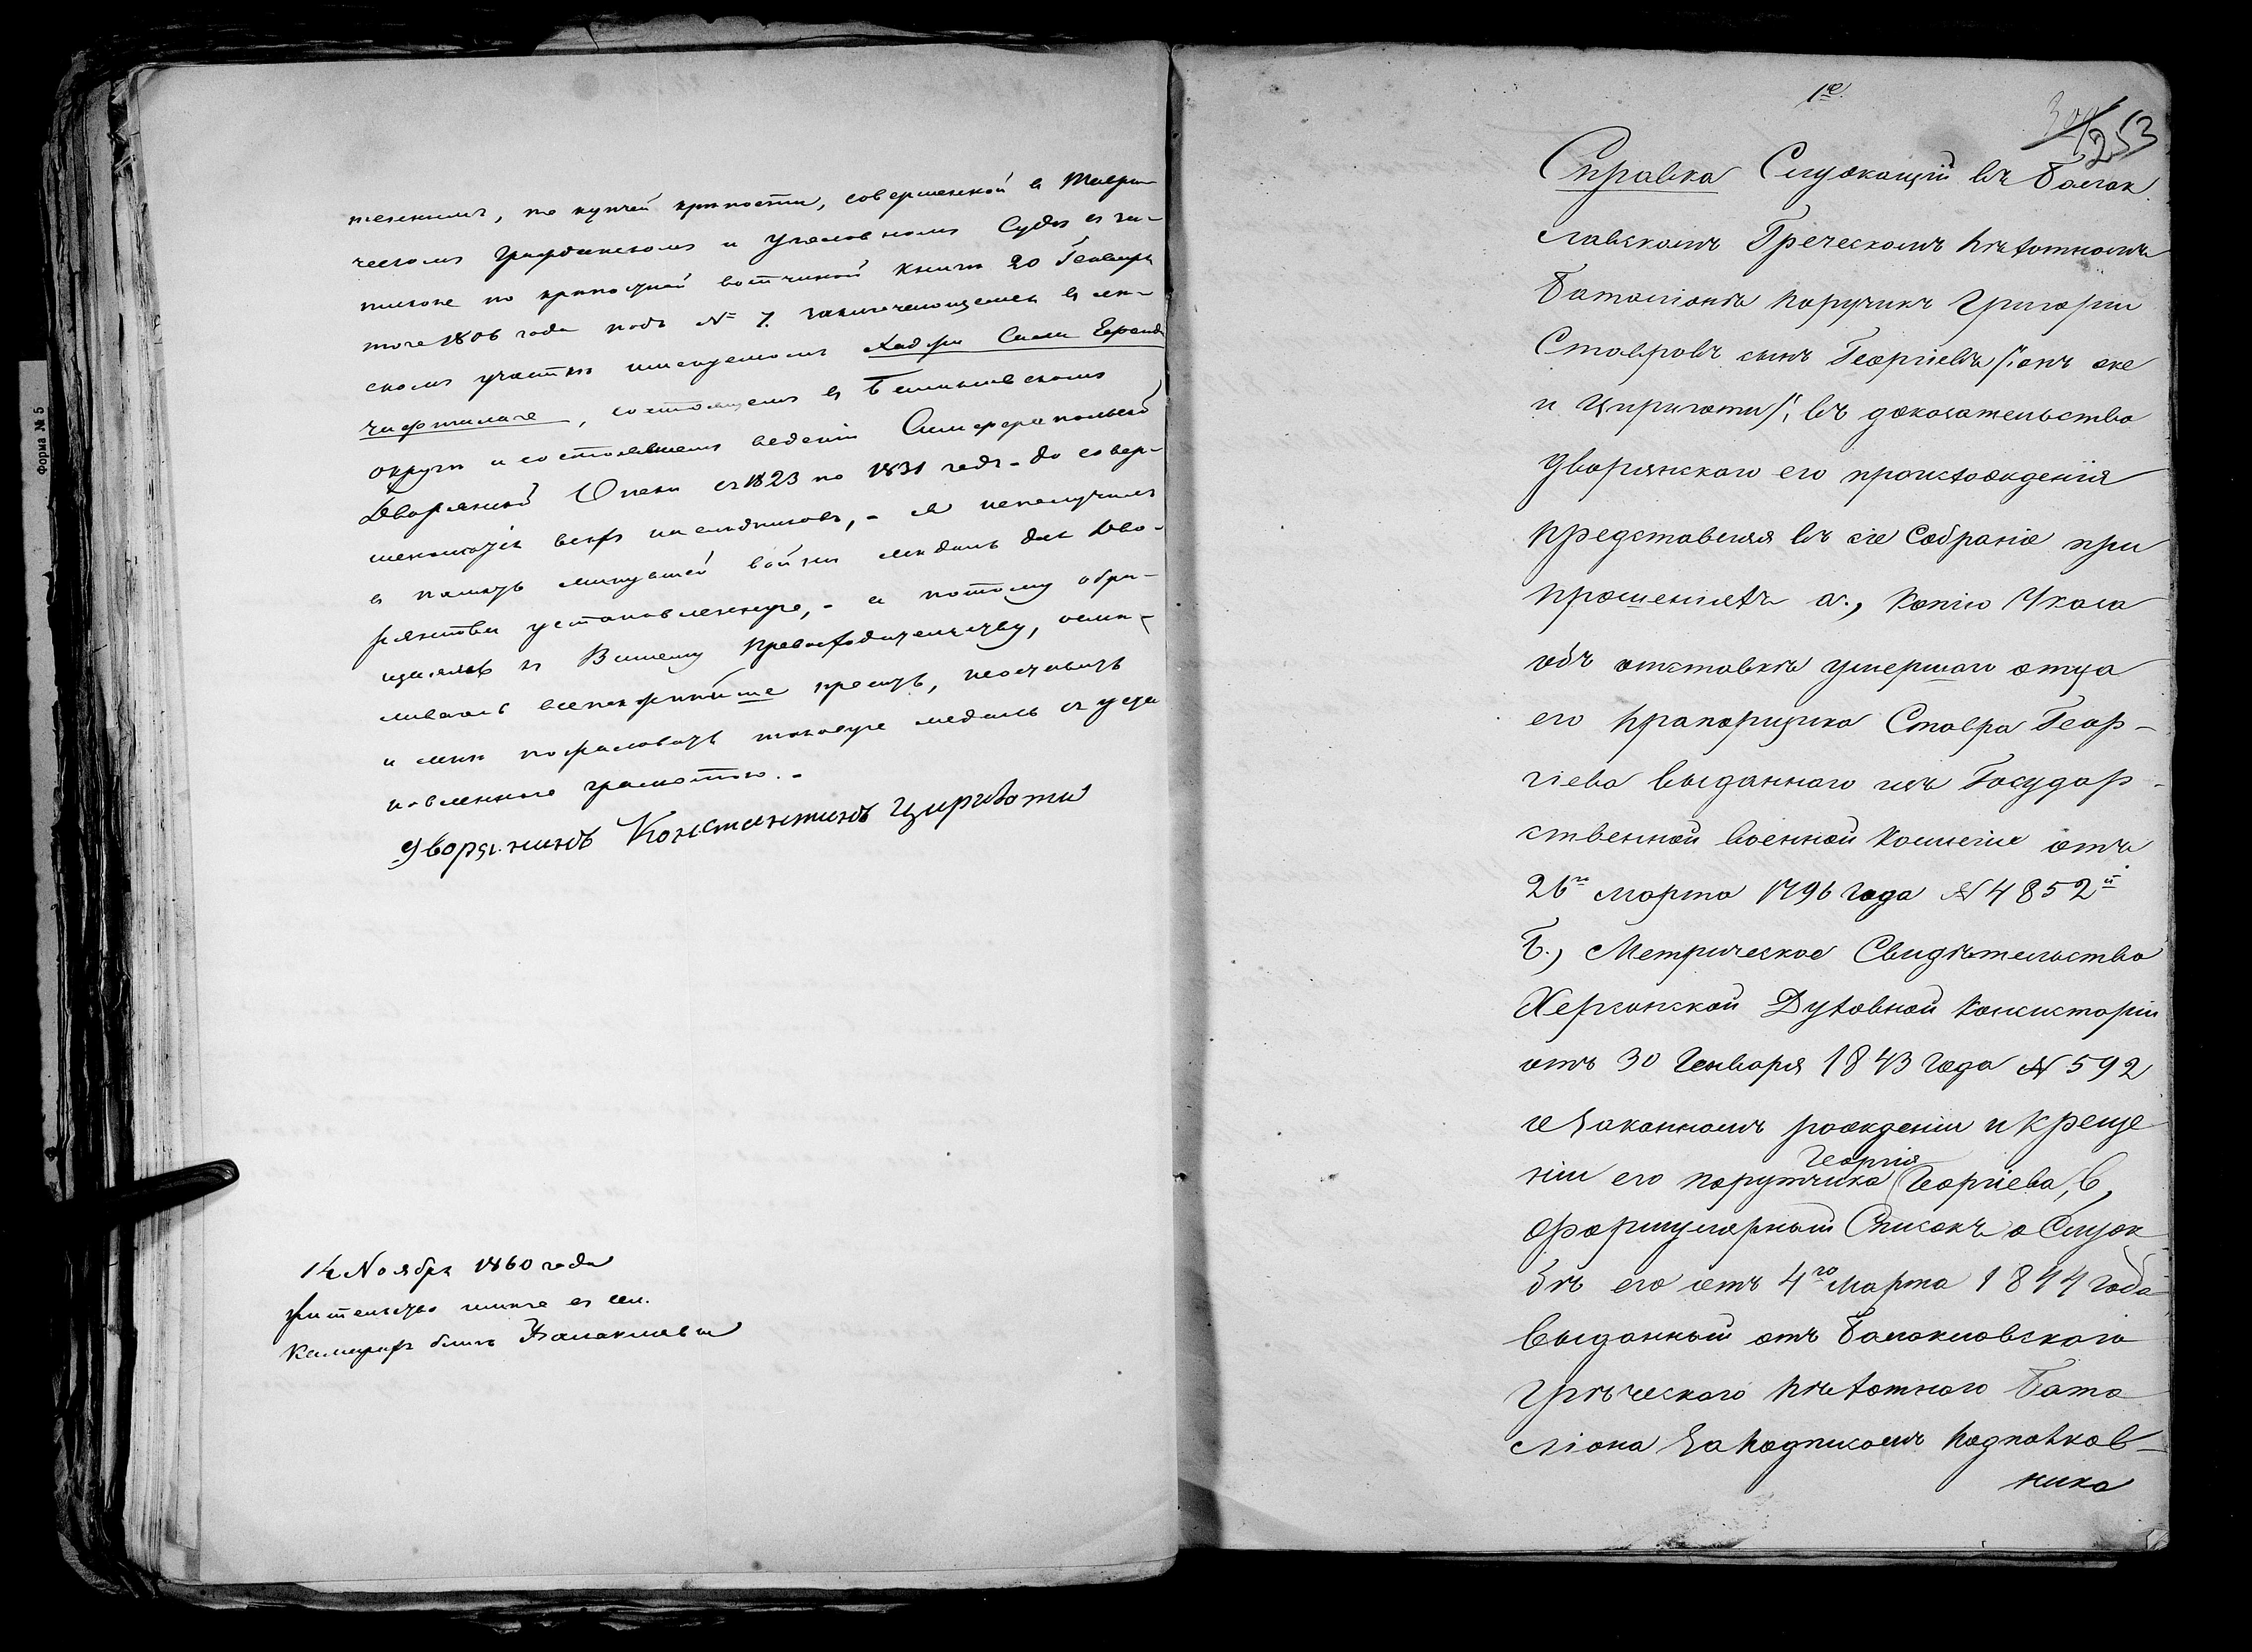 Форма № 5
тениемъ, по купчей крепости, совершенной в Таври-
ческомъ Гражданскомъ и Уголовномъ Суде и за-
писано по крепостной вотчинной книги 20 Генваря
того 1806 года подъ № 7. заключающемся в лес-
номъ участке именуемомъ Хаджи Сали Ефенди
чифтлике, состоящемъ в Темиковскомъ
округе и состоявшемъ ведении Симферопольской
Дворянской Опеки съ 1823 по 1831 годъ - до совер-
шеннолетія всехъ наследниковъ, - я неполучилъ
в память минувшей войны медаль для Дво-
рянства установленную, - а потому обра-
щаясь къ Вашему Превосходительству, осме-
ливаюсь всепокорнейше просить, неоставить
и мне пожаловать таковую медаль съ уста-
новленною грамотою. -
Дворянинъ Константинъ Цириготи
14 Ноября 1860 года
жительство имею въ сел.
близь Балаклавы
1е.
253
Справка Служащій въ Балак
лавскомъ Греческомъ пехотномъ
Баталіоне Поручикъ Григорій
Ставровъ сынъ Георгіевъ /:онъ же
и Цириготи/:, въ доказательство
дворянскаго его происхожденія
представилъ въ сіе Собраніе при
прошеніяхъ а., Копію Указа
объ отставке умершаго отца
его прапорщика Ставра Геор-
гіева выданнаго изъ Государ-
ственной военной Коллегіи отъ
26го марта 1796 года № 4852й
Б., Метрическое Свидетельство
Херсонской Духовной Консисторіи
отъ 30 Генваря 1843 года № 592
о законномъ рожденіи и креще
ніи его порутчика Георгія Георгіева, в,
формулярный Списокъ о Служ
бе его отъ 4го Марта 1844 года
выданный отъ Балаклавскаго
Греческаго пехотнаго Бата
ліона за Подписомъ Подполков-
ника